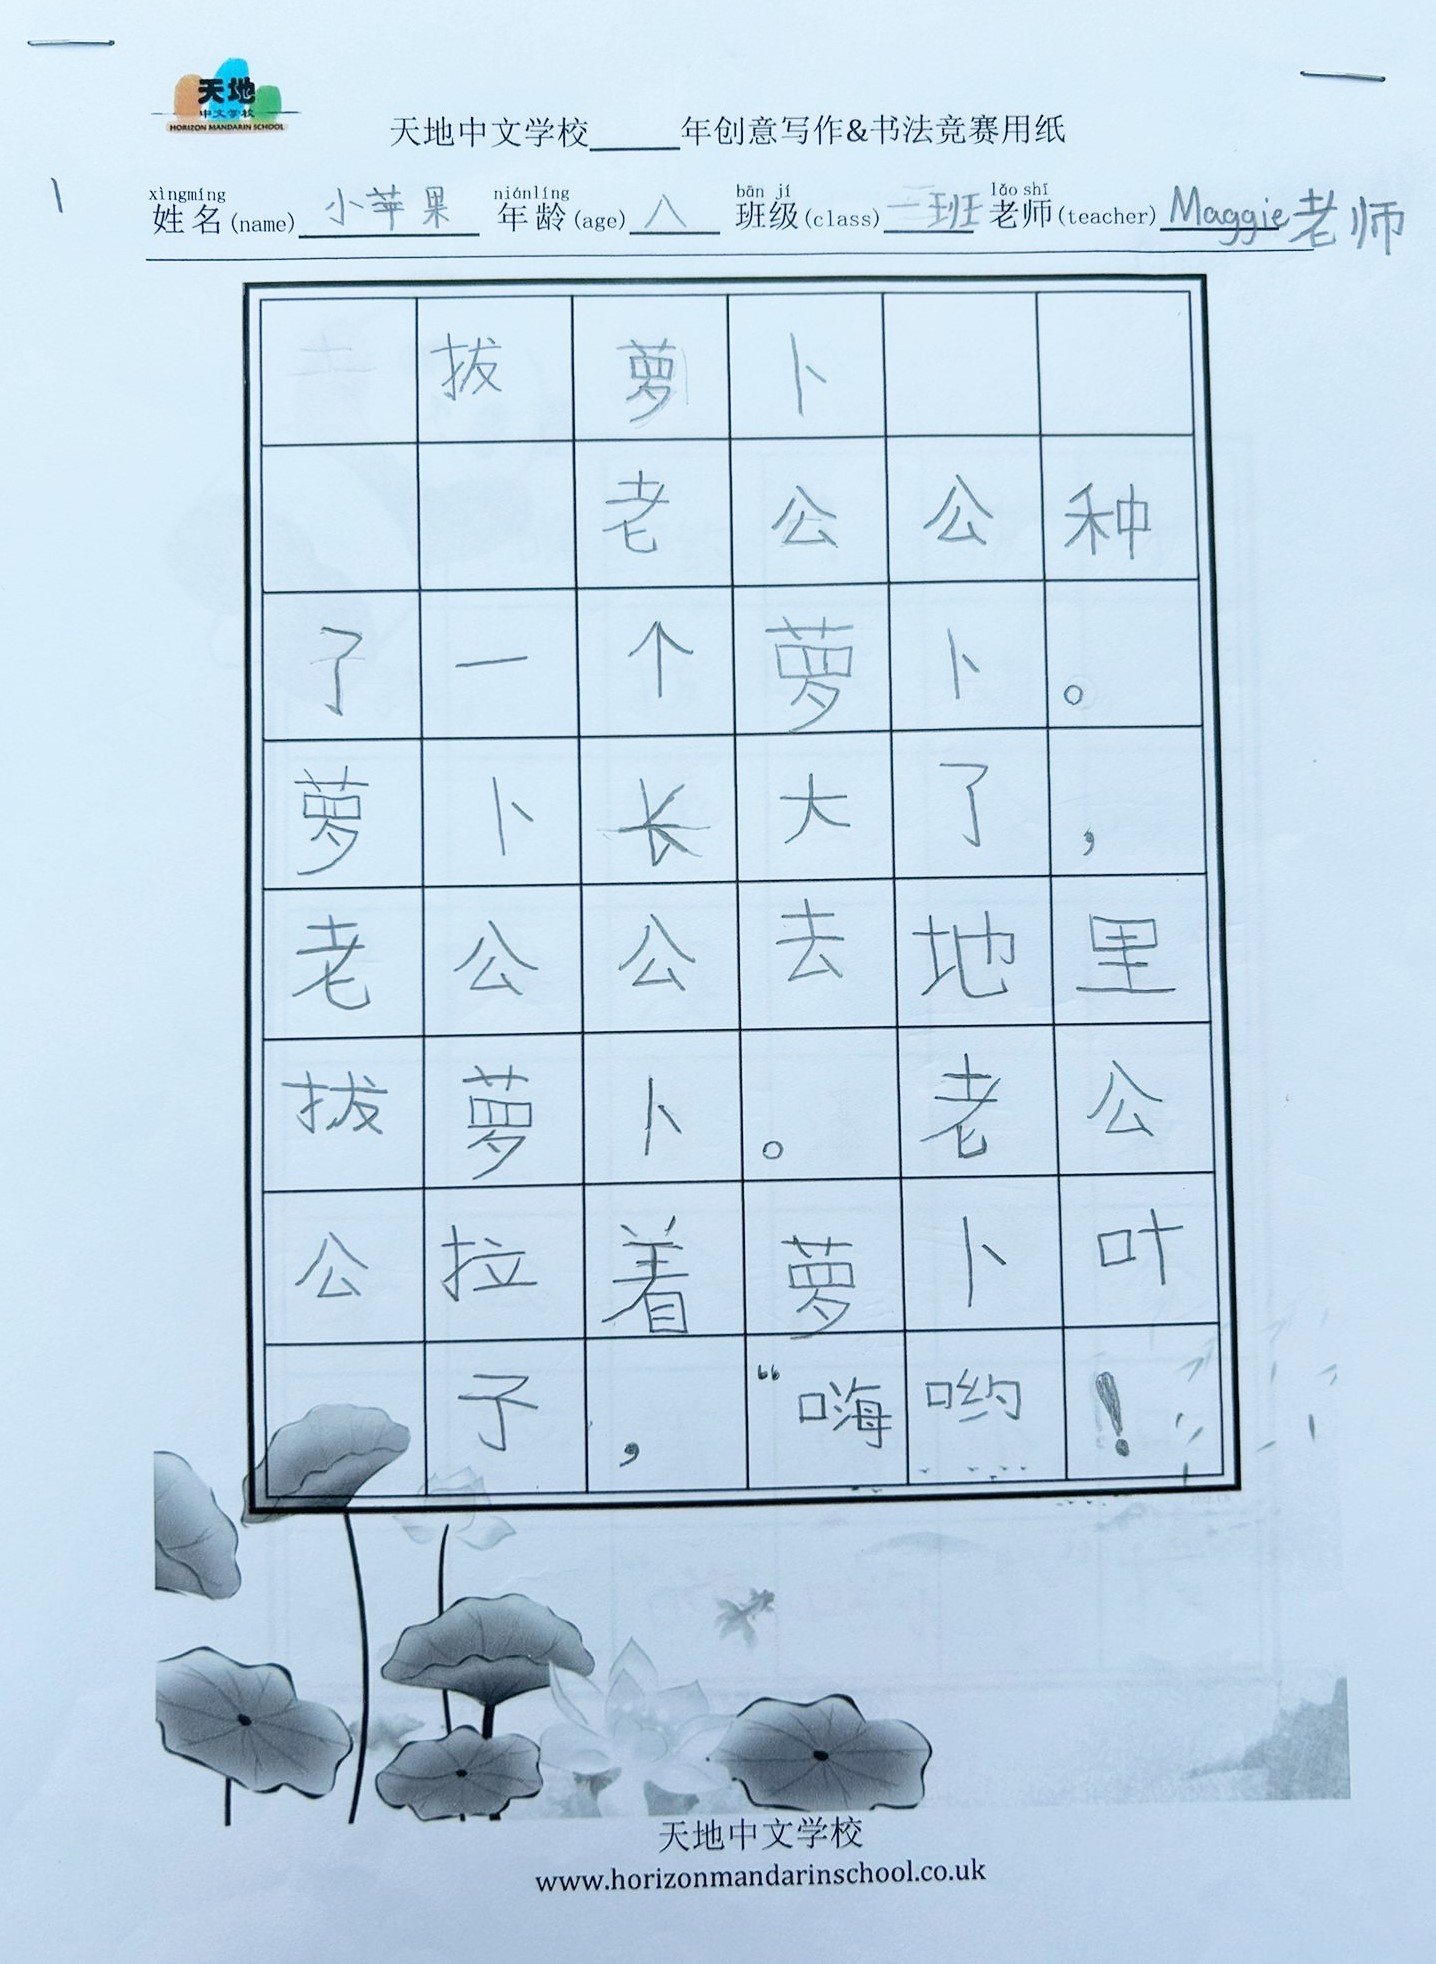 天地
中文学校
HORIZON MANDARIN SCHOOL
天地中文学校_____年创意写作&书法竞赛用纸
1
xìngmíng niánlíng bān jí lǎo shī
姓名(name) 小苹果 年龄(age) 八 班级(class) 二班 老师(teacher) Maggie老师
拔萝卜
老公公种
了一个萝卜。
萝卜长大了，
老公公去地里
拔萝卜。老公
公拉着萝卜叶
子，“嗨哟！
天地中文学校
www.horizonmandarinschool.co.uk